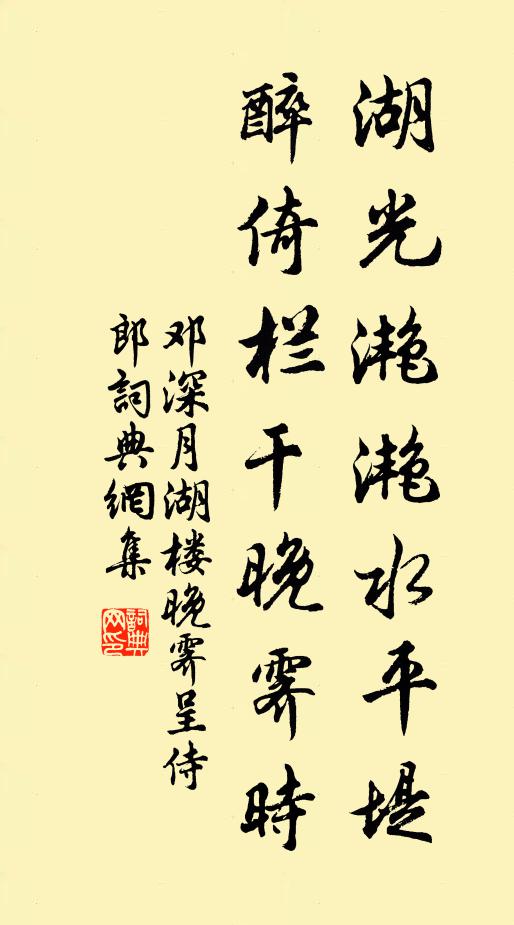 湖光滟滟水平堤
醉倚栏干晚霁时
邓深月湖楼晚霁呈侍
郎詞典網集
詞典网印